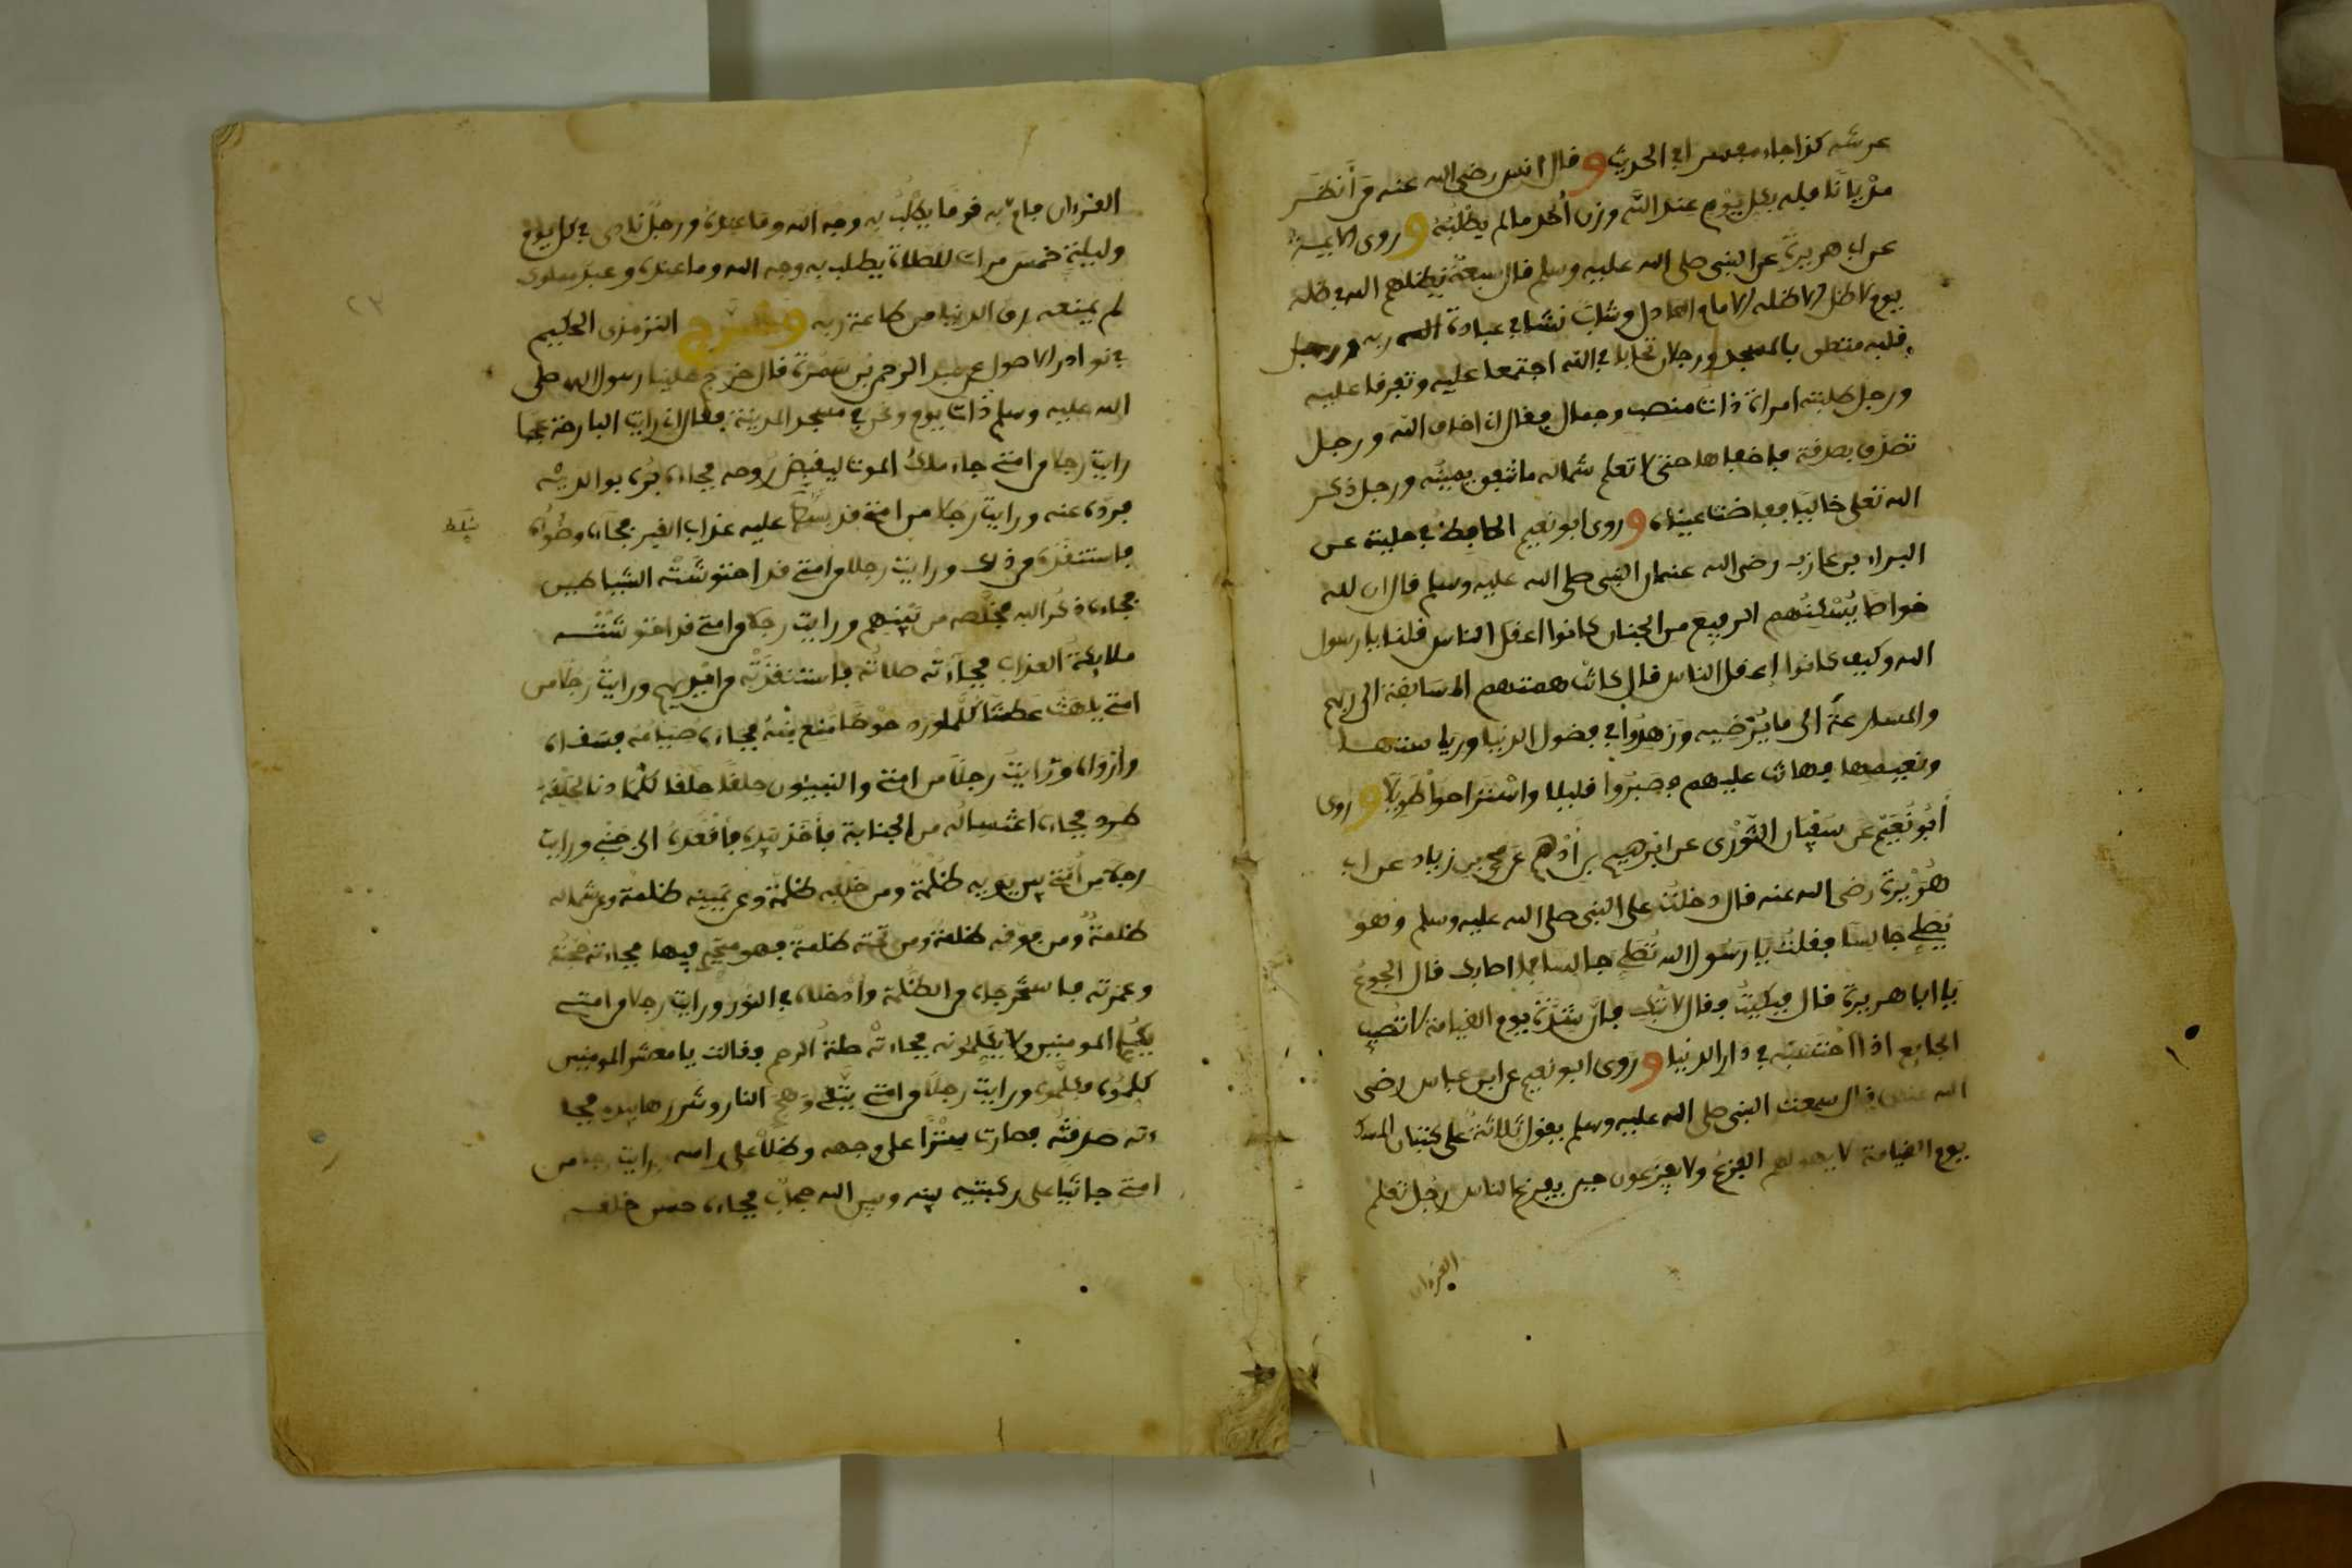 عرشه كذا جاء مفسرا في الحديث وقال انس رضي الله عنه من أنظر
مديانا فله بكل يوم عند الله وزن أحد ما لم يطلبه وروى الايمة
عن ابي هريرة عن النبي صلى الله عليه وسلم قال سبعة يظلهم الله في ظله
يوم لا ظل الا ظله الامام العادل وشاب نشا في عبادة الله ربه ورجل
قلبه متعلق بالمسجد ورجلان تحابا في الله اجتمعا عليه وتفرقا عليه
ورجل طلبته امراة ذات منصب وجمال فقال اني اخاف الله ورجل
تصدق بصدقة فاخفاها حتى لا تعلم شماله ما تنفق يمينه ورجل ذكر
الله تعلى خاليا ففاضت عيناه وروى ابو نعيم الحافظ في حليته عن
البراء بن عازب رضي الله عنه ان النبي صلى الله عليه وسلم قال ان لله
خواصا يسكنهم الرفيع من الجنان كانوا اعقل الناس قلنا يا رسول
الله وكيف كانوا اعقل الناس قال كانت همتهم المسابقة الى ربهم
والمسارعة الى ما يرضيه وزهدوا في فضول الدنيا ورياستها
ونعيمها فهانت عليهم فصبروا قليلا واستراحوا طويلا وروى
أبو نعيم عن سفيان الثوري عن ابرهيم بن أدهم عن محمد بن زياد عن ابي
هريرة رضي الله عنه قال دخلت على النبي صلى الله عليه وسلم وهو
يصلي جالسا فقلت يا رسول الله تصلي جالسا فما اصابك قال الجوع
يا ابا هريرة قال فبكيت فقال لا تبك فان شدة يوم القيامة لا تصيب
الجايع اذا احتسب في دار الدنيا وروى ابو نعيم عن ابن عباس رضي
الله عنه قال سمعت النبي صلى الله عليه وسلم يقول ثلاثة على كثبان المسك
يوم القيامة لا يهولهم الفزع ولا يفزعون حين يفزع الناس رجل تعلم
القرءان
القرءان فام به قوما يطلب به وجه الله وما عنده ورجل نادى في كل يوم
وليلة خمس مرات للصلاة يطلب به وجه الله وما عنده وعبد مملوك
لم يمنعه رق الدنيا من طاعة ربه وخرج الترمذي الحكيم
في نوادر الاصول عن عبد الرحمن بن سمرة قال خرج علينا رسول الله صلى
الله عليه وسلم ذات يوم ونحن في مسجد المدينة فقال اني رايت البارحة عجبا
رايت رجلا من امتي جاءه ملك الموت ليقبض روحه فجاءه بره بوالديه
فرده عنه ورايت رجلا من امتي قد سلط عليه عذاب القبر فجاءه وضوءه
فاستنقذه من ذلك ورايت رجلا من امتي قد احتوشته الشياطين
فجاءه ذكر الله فخلصه من بينهم ورايت رجلا من امتي قد احتوشته
ملايكة العذاب فجاءته صلاته فاستنقذته من ايديهم ورايت رجلا من
امتي يلهث عطشا كلما ورد حوضا منع منه فجاءه صيامه فسقاه
وارواه ورايت رجلا من امتي والنبيون حلقا حلقا كلما دنا لحلقة
طرد فجاءه اغتساله من الجنابة فأخذ بيده فأقعده الى جنبي ورايت
رجلا من أمتي بين يديه ظلمة ومن خلفه ظلمة وعن يمينه ظلمة وعن شماله
ظلمة ومن فوقه ظلمة ومن تحته ظلمة فهو متحير فيها فجاءته حجته
وعمرته فاستخرجاه من الظلمة وأدخلاه في النور ورايت رجلا من امتي
يكلم المومنين ولا يكلمونه فجاءته صلة الرحم فقالت يا معشر المومنين
كلموه فكلموه ورايت رجلا من امتي يتقي وهج النار وشررها بيده فجا
ءته صدقته فصارت سترا على وجهه وظلا على راسه ورايت رجلا من
امتي جاثيا على ركبتيه بينه وبين الله حجاب فجاءه حسن خلقه
سلط
٢٣